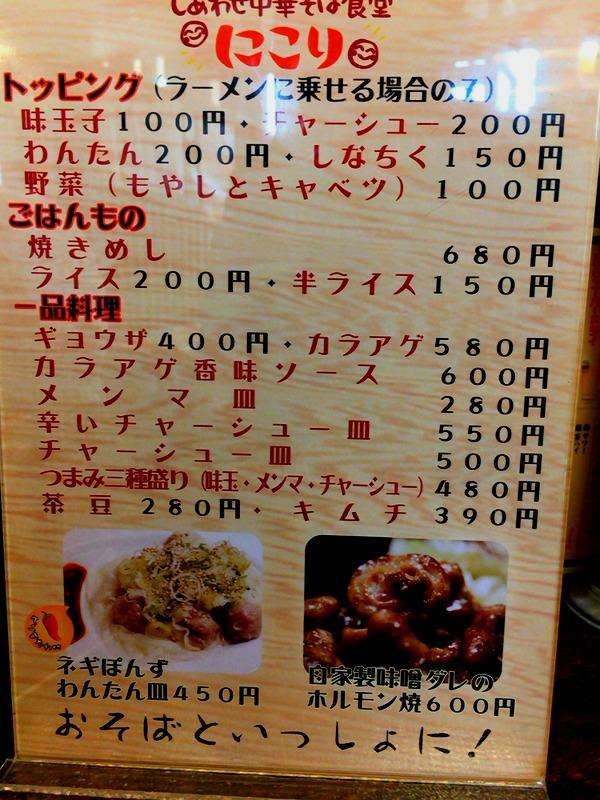 しあわせ中華そば食堂
にこり
トッピング(ラーメンに乗せる場合のみ)
味玉子100円・チャーシュー200円
わんたん200円・しなちく150円
野菜(もやしとキャベツ) 100円
ごはんもの
焼きめし 680円
ライス200円・半ライス150円
一品料理
ギョウザ400円・カラアゲ580円
カラアゲ香味ソース 600円
メンマ皿 280円
辛いチャーシュー皿 550円
チャーシュー皿 500円
つまみ三種盛り(味玉・メンマ・チャーシュー)480円
茶豆 280円・キムチ 390円
ネギぽんず
わんたん皿450円
自家製味噌ダレの
ホルモン焼600円
おそばといっしょに!